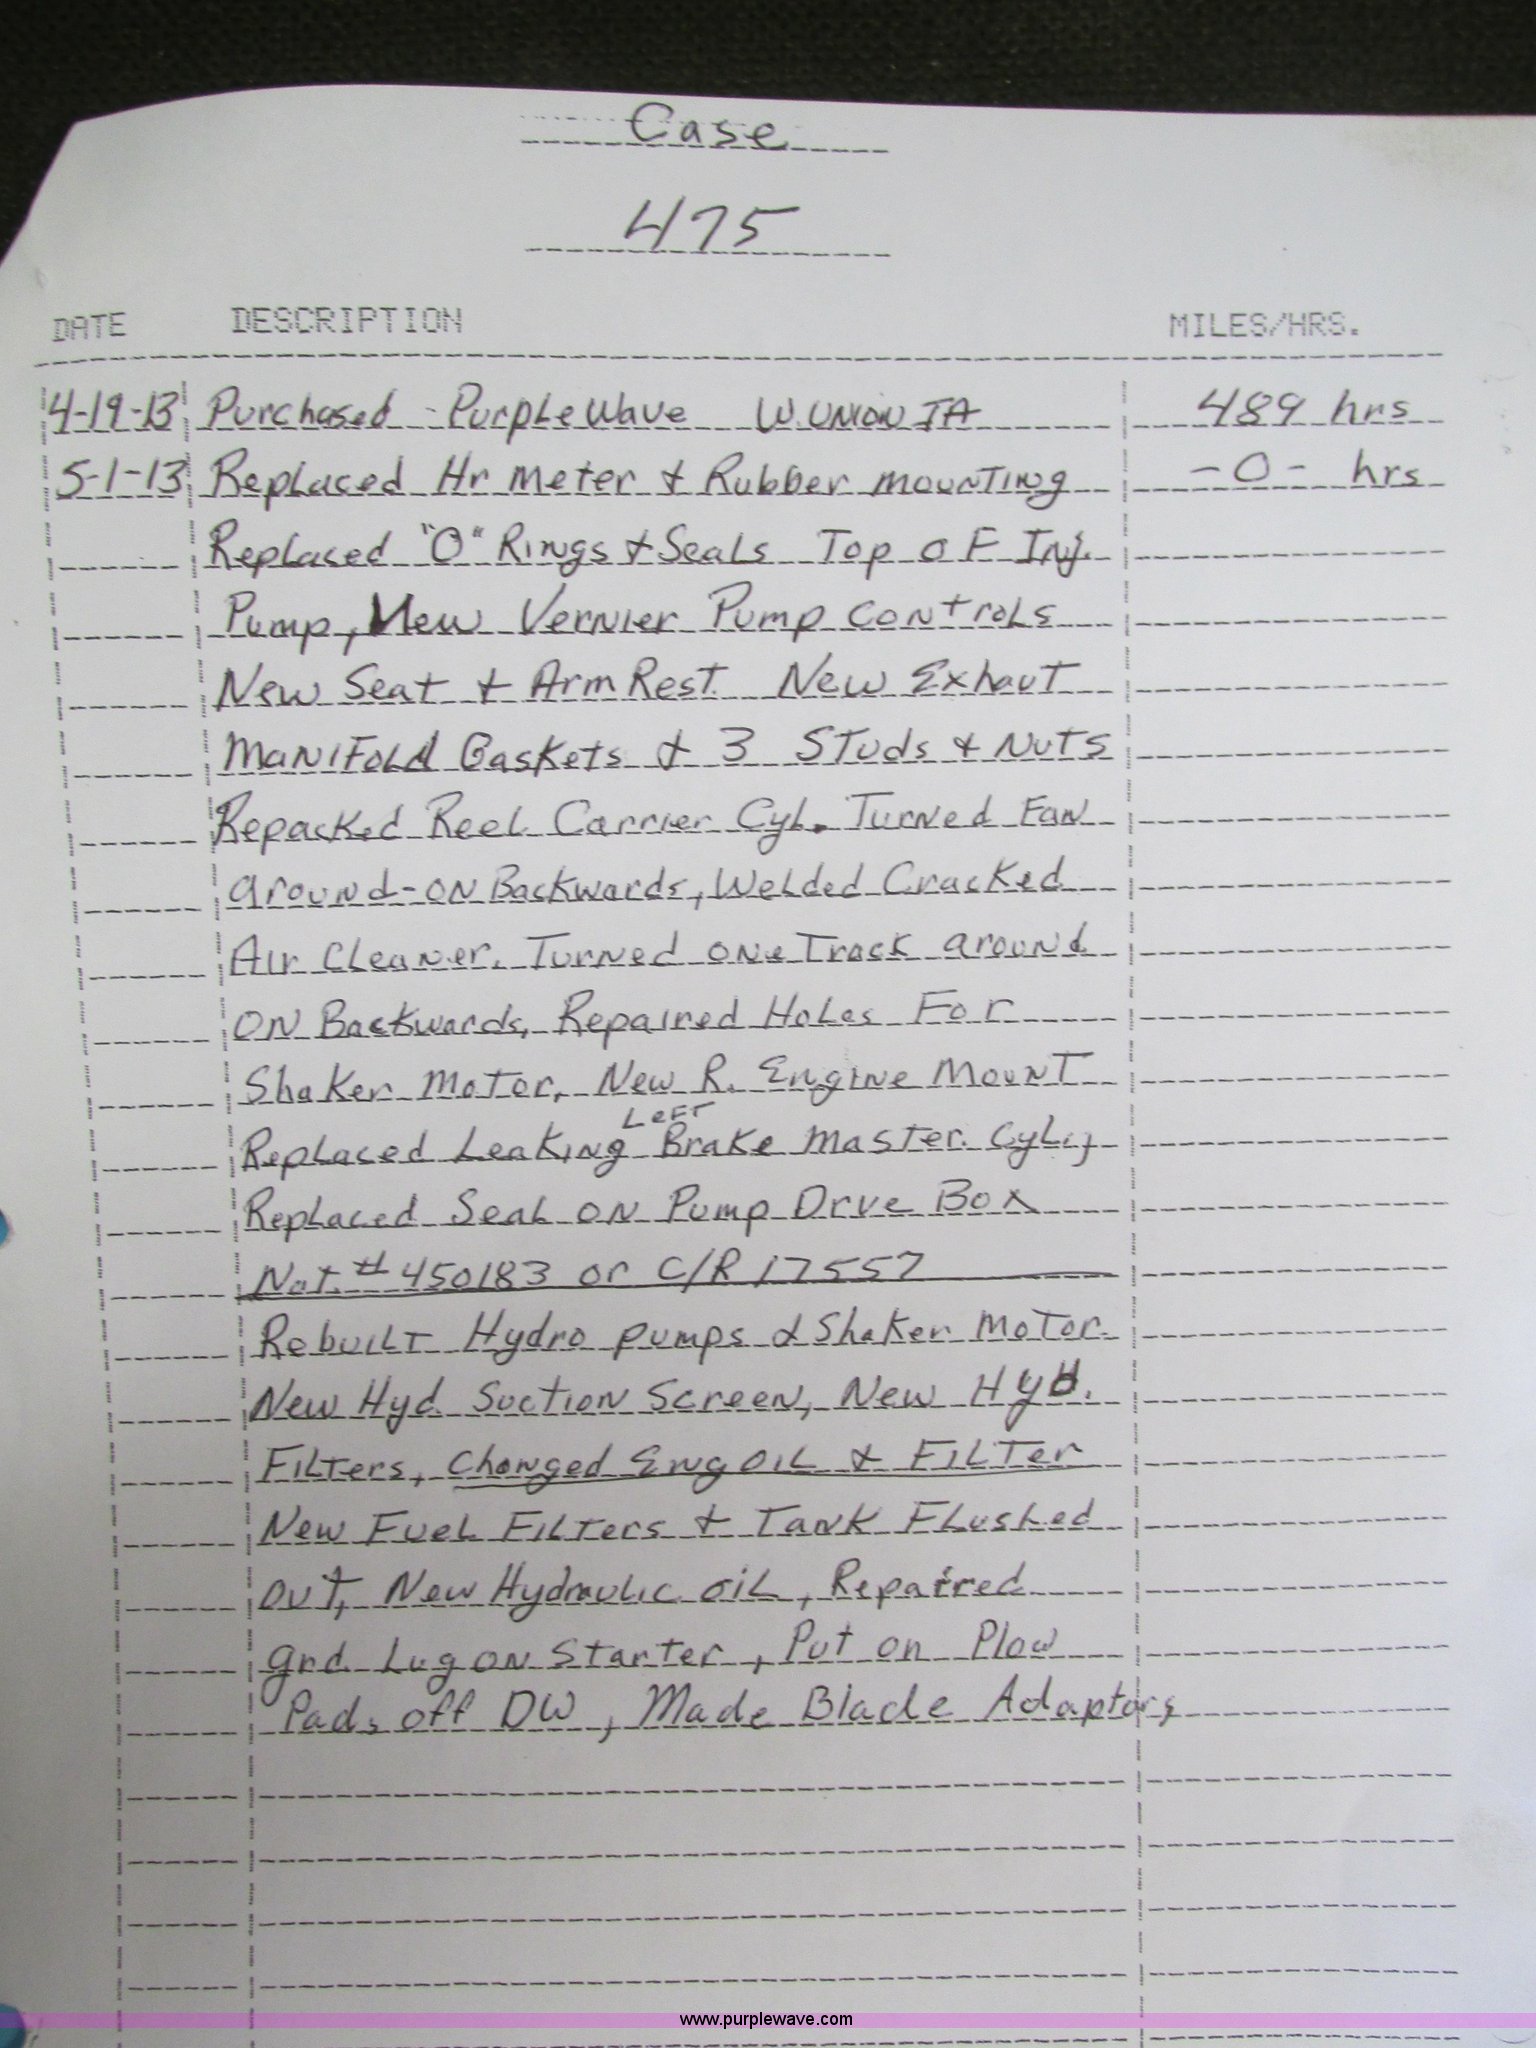 Case
475
DATE DESCRIPTION MILES/HRS.
4-19-13 Purchased - PurpLeWave W. UNION IA 489 hrs
5-1-13 Replaced Hr meter & Rubber mounting -0- hrs
Replaced "O" Rings & Seals Top oF Inj.
Pump, New Vernier Pump controls
New Seat & Arm Rest New Exhaut
Manifold Gaskets & 3 Studs & Nuts
Repacked Reel Carrier Cyl. Turned Fan
around-on Backwards, Welded Cracked
Air Cleaner. Turned one Track around
on Backwards, Repaired Holes For
Shaker Motor, New R. Engine Mount
Left
Replaced Leaking Brake Master Cyl,
Replaced Seal on Pump Drve Box
Nat. # 450183 or C/R 17557
Rebuilt Hydro pumps & Shaker Motor.
New Hyd. Suction Screen, New Hyd.
Filters, Changed Eng oil & Filter
New Fuel Filters & Tank Flushed
out, New Hydraulic oil, Repaired
grd. Lug on Starter, Put on Plow
Pads off DW, Made Blade Adaptors
www.purplewave.com